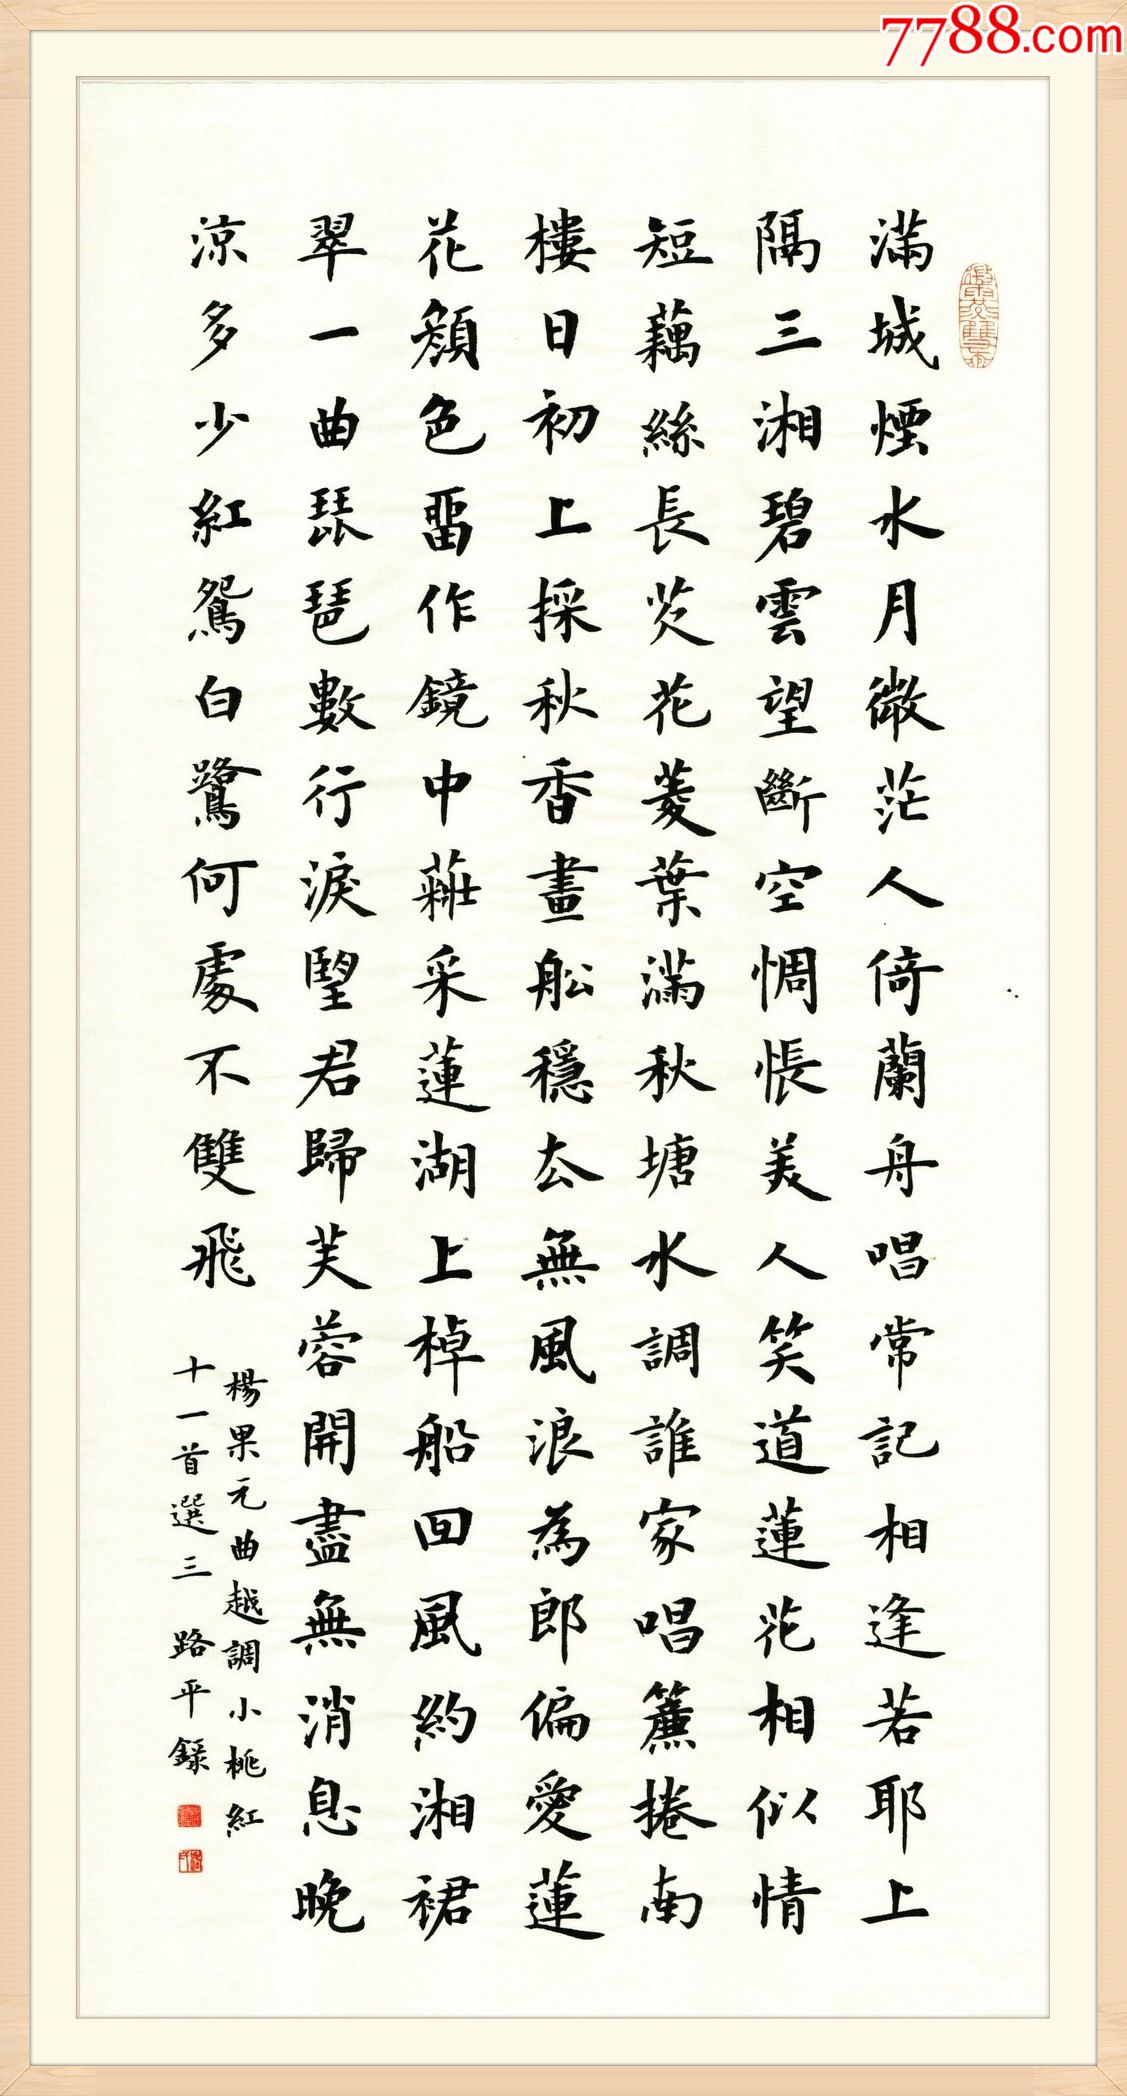 7788.com
滿城煙水月微茫人倚蘭舟唱常記相逢若耶上
隔三湘碧雲望斷空惆悵美人笑道蓮花相似情
短藕絲長芡花菱葉滿秋塘水調誰家唱簾捲南
樓日初上採秋香畫舩穩去無風浪為郎偏愛蓮
花顏色畱作鏡中粧采蓮湖上棹船回風約湘裙
翠一曲琵琶數行淚望君歸芙蓉開盡無消息晚
涼多少紅鴛白鷺何處不雙飛
楊果元曲越調小桃紅
十一首選三 路平錄